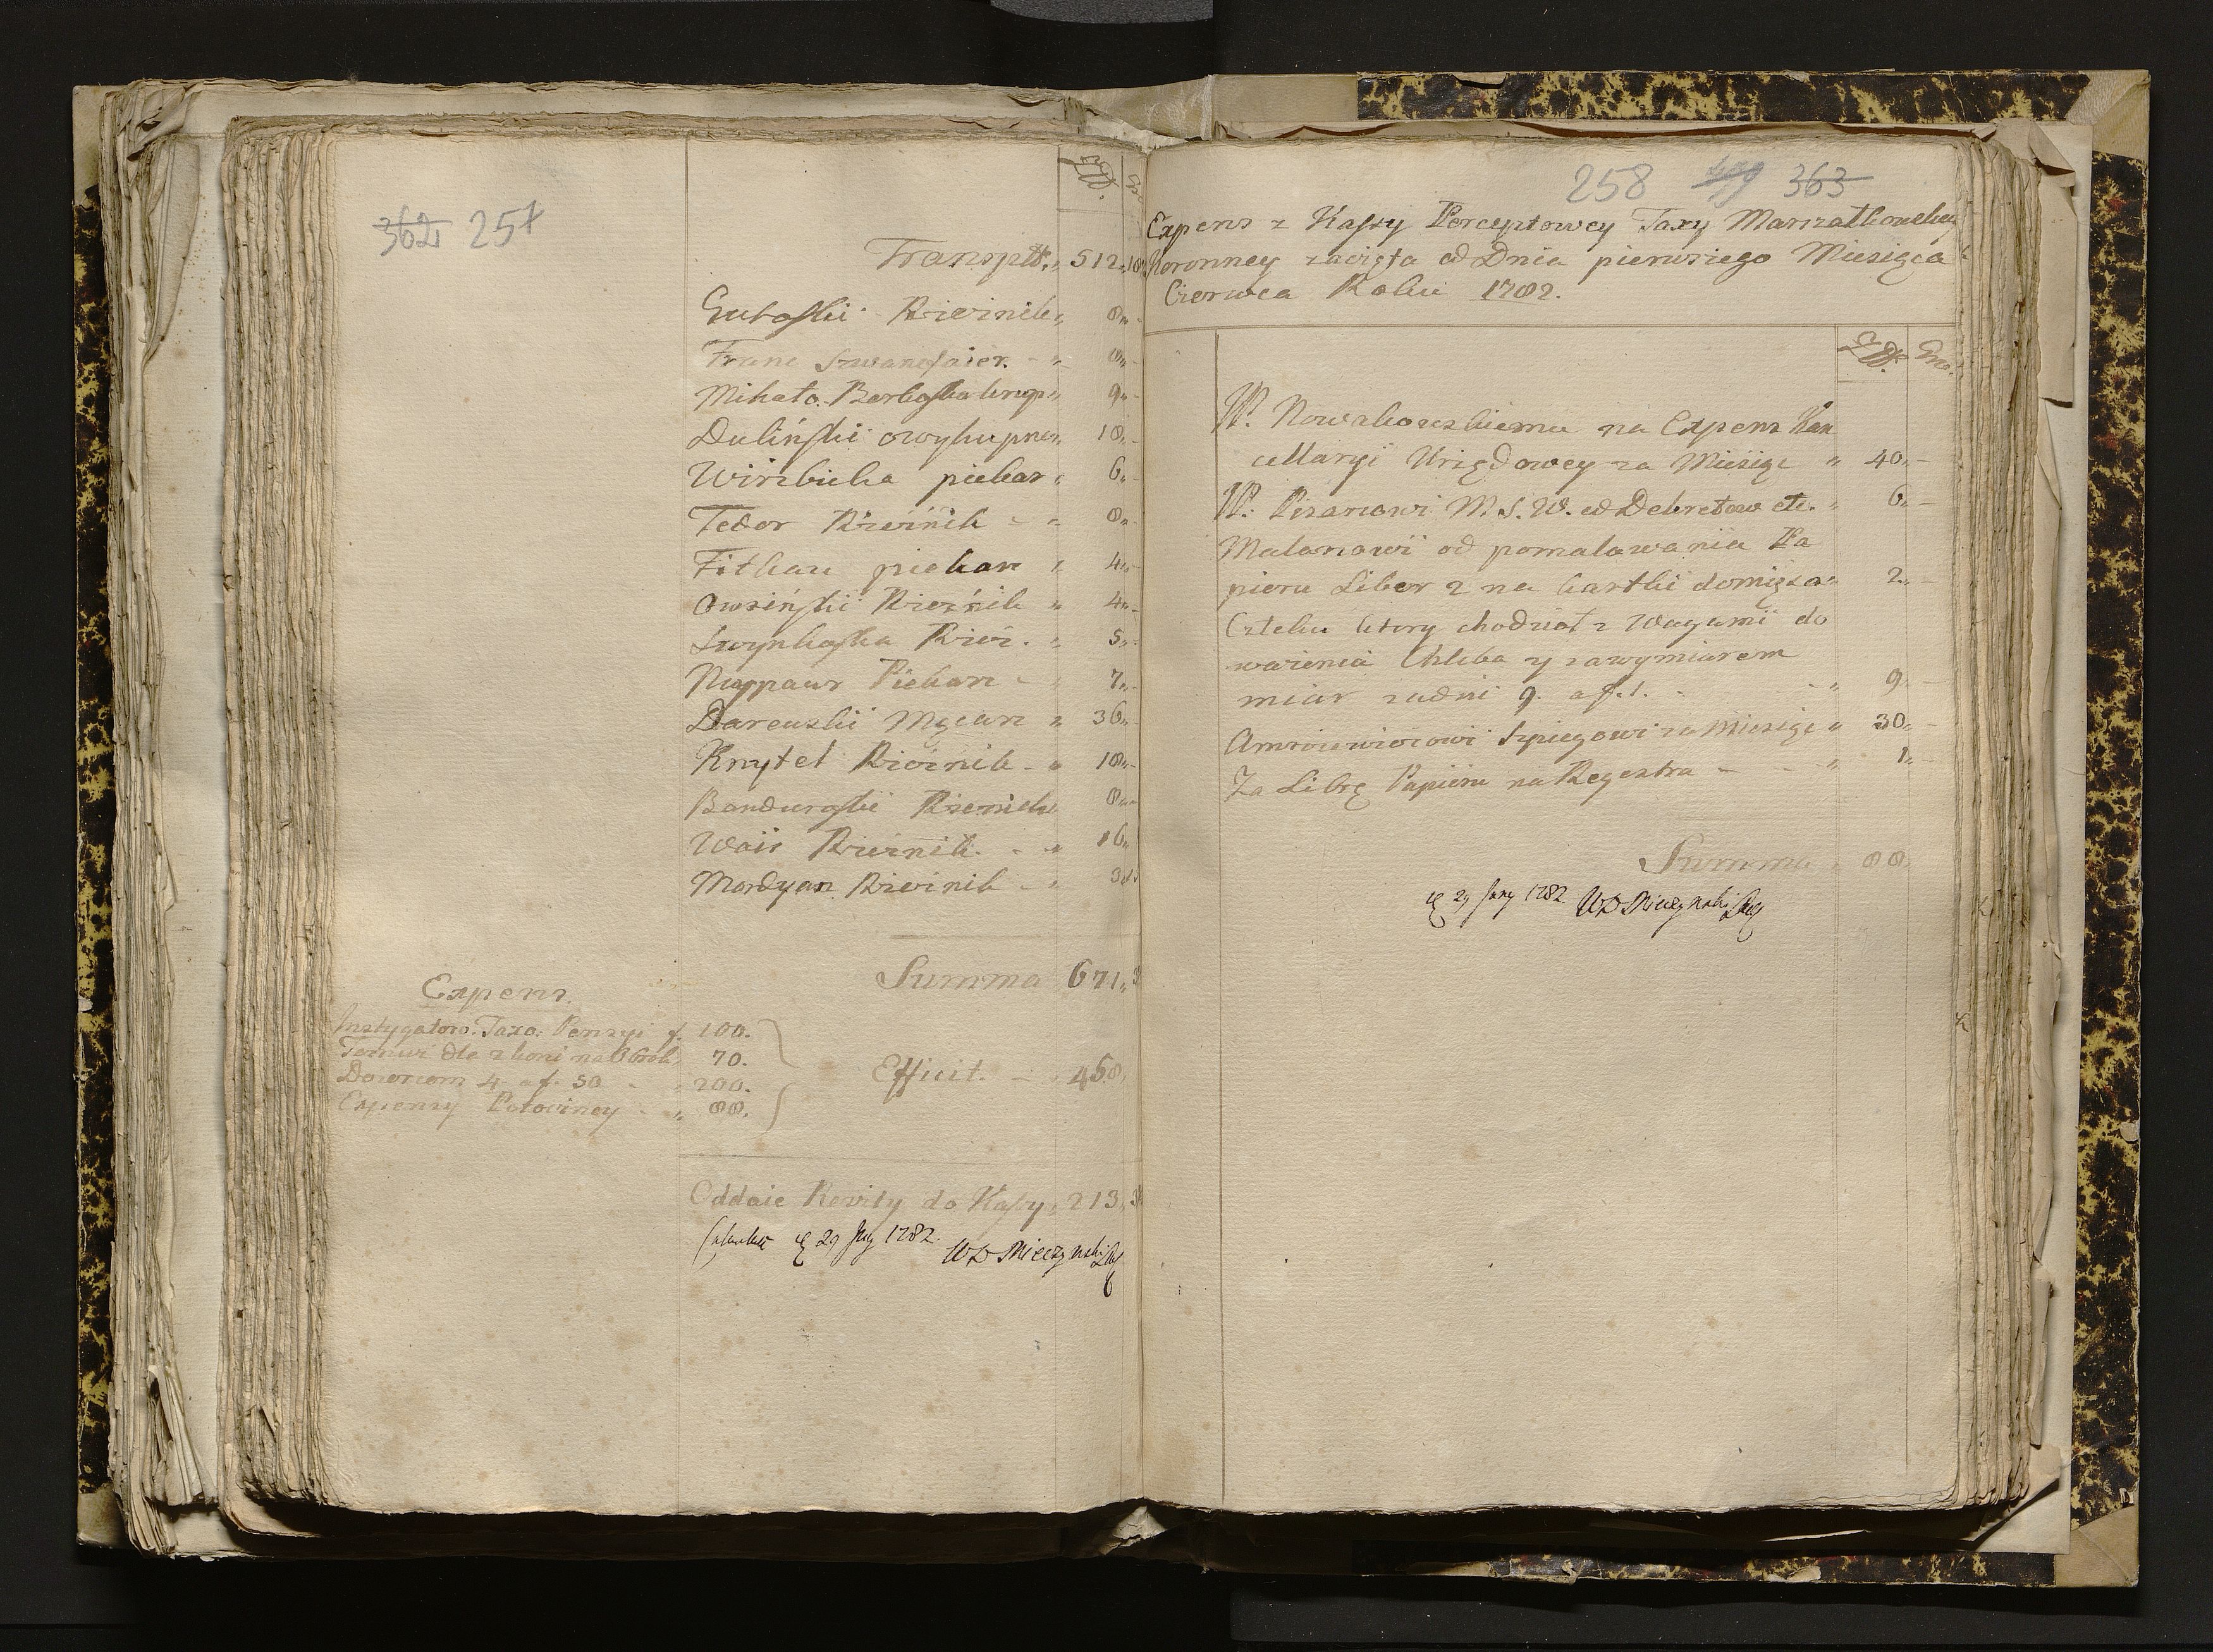 362 257
Złt. gr
Transptt. „ 512 „ 18
Gutoski Rzeźnik „ 8 „ -
Franc Szwancfaier. - „ 8 „ -
Mihało. Borkoska krup. „ 9 „ -
Duliński owy „ 18 „ -
Wirzbicka piekar „ 6 „
Fedor Rzeźnik - „ 8 „
piekarz „ 4 „ -
Owsiński Rzeźnik „ 4 „ -
Szoynkoska Rzeź. „ 5 „ -
Nuppaur Piekarz - „ 7 „ -
Dareuski Mączarz „ 36 „
Knytel Rzeźnik - „ 18 „ -
Bandurski Rzeźnik „ 8 „
Wais Rzeźnik - „ 16 „
Mordyan Rzeźnik - „
Summa 671 „
Expens.
Instygator. Taxo. Pensyi f. 100.
Temuż dla 2 koni na Obrok „ 70.
Dozorcom 4 a f. 50 - „ 200.
Expensy Potoczney - „ 88.
Efficit. - 458 „
Oddaie Reszty do Kassy „ 213 „
29 Juny 1782. WD Mieczynski
258 363
Expens z Kassy Perceptowey Taxy Marszałkowskiey
Koronney zaczęta od Dnia pierwszego Miesiąca
Czerwca Roku 1782.
Złt. Gro.
W. Nowakowskiemu na Expens Kan
cellaryi Urzędowey za Miesiąc „ 40 „ -
W. Pisarzowi M. S. W. od Dekretow etc. „ 6 „ -
Malarzowi od pomalowania Pa
pieru Liber 2 na kartki do mięsa „ 2 „ -
Człeku ktory chodził z Wagami do
ważenia Chleba y za wymiarem
miar za dni 9. a f. 1. - „ 9 „ -
Amroziewiczowi Szpiegowi za Miesiąc „ 30 „ -
Za Librę Papieru na Regestra - - „ 1 „ -
Summa „ 88 „
29 Juny 1782 WD Mieczynski